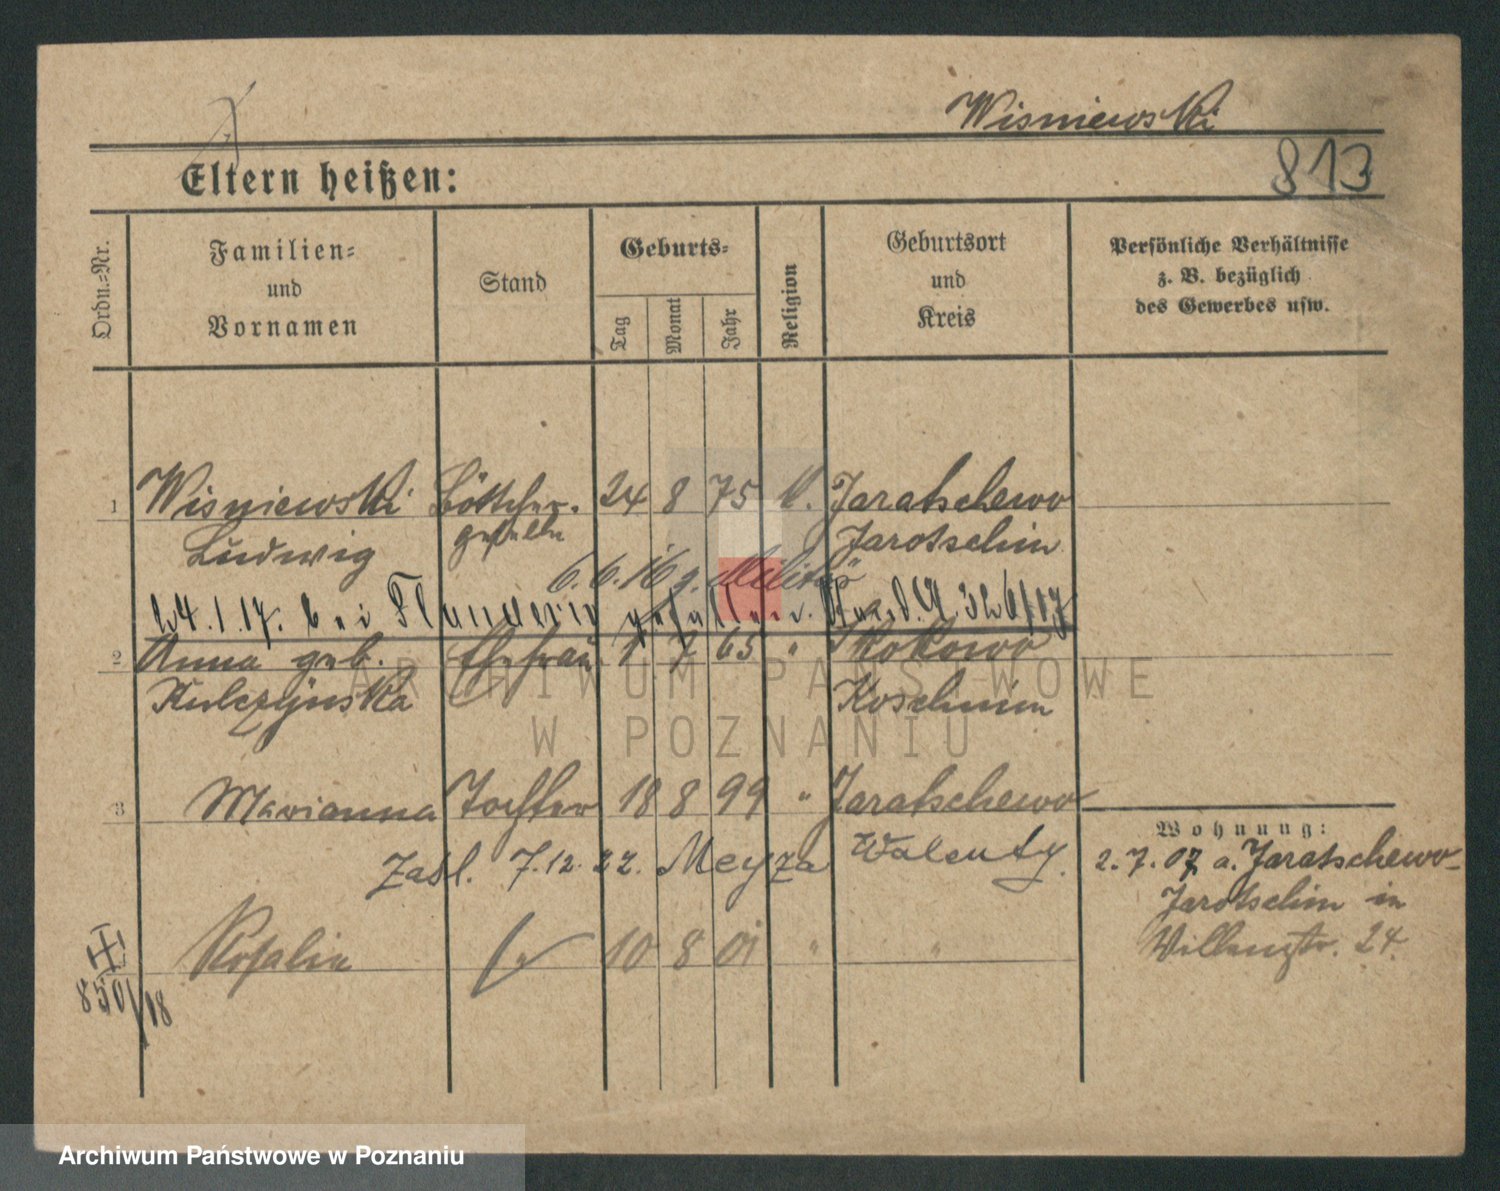 Wisniewski
813
Eltern heißen:
Ordn.-Nr.
Familien-
und
Vornamen
Stand
Geburts-
Tag
Monat
Jahr
Religion
Geburtsort
und
Kreis
Persönliche Verhältnisse
z. B. bezüglich
des Gewerbes usw.
1 Wisniewski Böttcher- 24 8 75 k. Jaratschewo
Ludwig geselle Jarotschin
6.6.16 z. Militär
24.1.17. bei Flanderie gefallen
2 Anna geb. Ehefrau 1 7 65 " Kokowo
Kulczynska Koschmin
3 Marianna Tochter 18 8 99 " Jaratschewo
Zaśl. 7.12.22. Meyza Walenty.
Rosalie " 10 8 01 " "
850/18
Wohnung:
2.7.07 a. Jaratschewo-
Jarotschin in
24.
ARCHIWUM PAŃSTWOWE
W POZNANIU
Archiwum Państwowe w Poznaniu